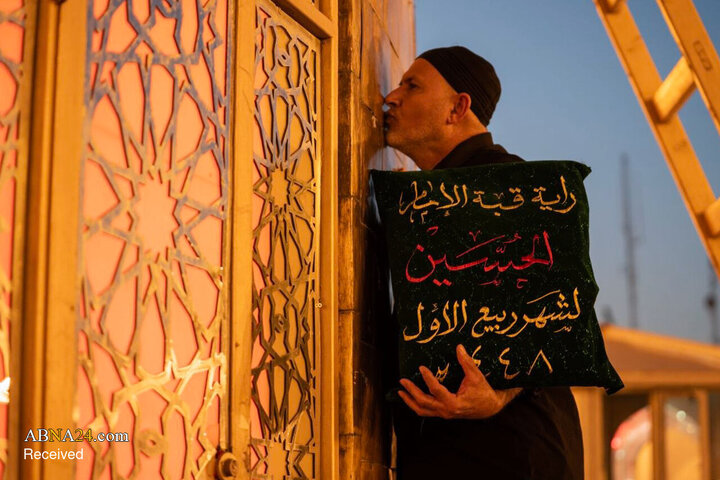 راية قبة الإمام
الحسين
لشهر ربيع الأول
١٤٤٨
ABNA24.com
Received